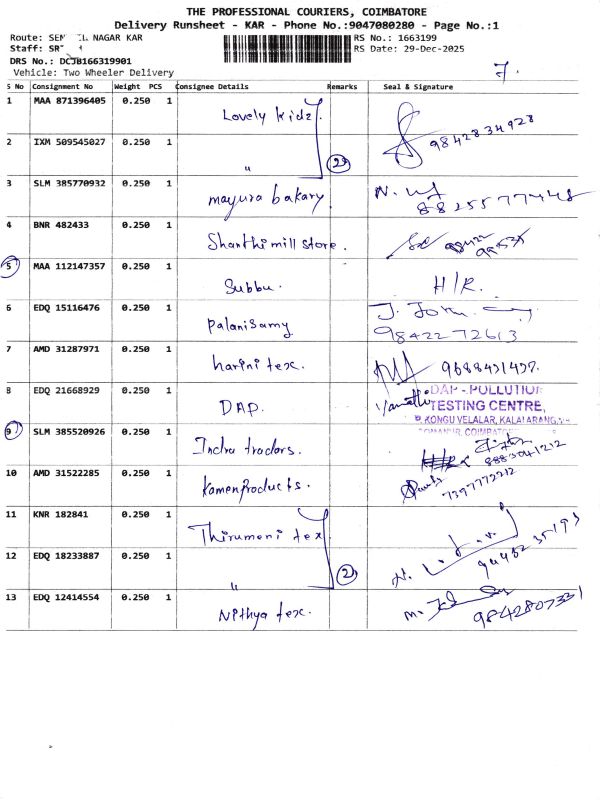 THE PROFESSIONAL COURIERS, COIMBATORE
Delivery Runsheet - KAR - Phone No.:9047080280 - Page No.:1
Route: SEN EL NAGAR KAR RS No.: 1663199
Staff: SR RS Date: 29-Dec-2025
DRS No.: DCJB166319901
Vehicle: Two Wheeler Delivery
S No Consignment No Weight PCS Consignee Details Remarks Seal & Signature
1 MAA 871396405 0.250 1 Lovely kidz 9842834928
2 IXM 509545027 0.250 1 " 2
3 SLM 385770932 0.250 1 mayura bakary 8825577448
4 BNR 482433 0.250 1 Shanthi mill store.
5 MAA 112147357 0.250 1 Subbu. H/R.
6 EDQ 15116476 0.250 1 palanisamy J. John
9842272613
7 AMD 31287971 0.250 1 harini tex. 9688451497.
8 EDQ 21668929 0.250 1 DAP. DAP - POLLUTION
TESTING CENTRE,
KONGU VELALAR, KALAIARANG
9 SLM 385520926 0.250 1 Indra tradars. 8883041212
10 AMD 31522285 1 0.250 Kamenproducts. 7397772212
11 KNR 182841 0.250 1 Thirumeni tex
12 EDQ 18233887 0.250 1 " 2
13 EDQ 12414554 0.250 1 Nithya tex. 9842807331